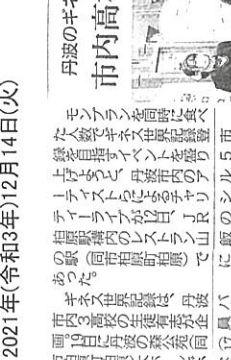 2021年(令和3年)12月14日(火)
丹波のギネ
市内高
モンブランを同時に食べ
た人数でギネス世界記録登
録を目指すイベントを盛り
上げようと、丹波市内のア
ーティストらによるチャリ
ティーライブが12日、JR
柏原駅構内のレストラン山
の駅(同市柏原町柏原)で
あった。
ギネス世界記録は、丹波
市内3高校の生徒有志が企
画。19日に丹波の森公苑(同